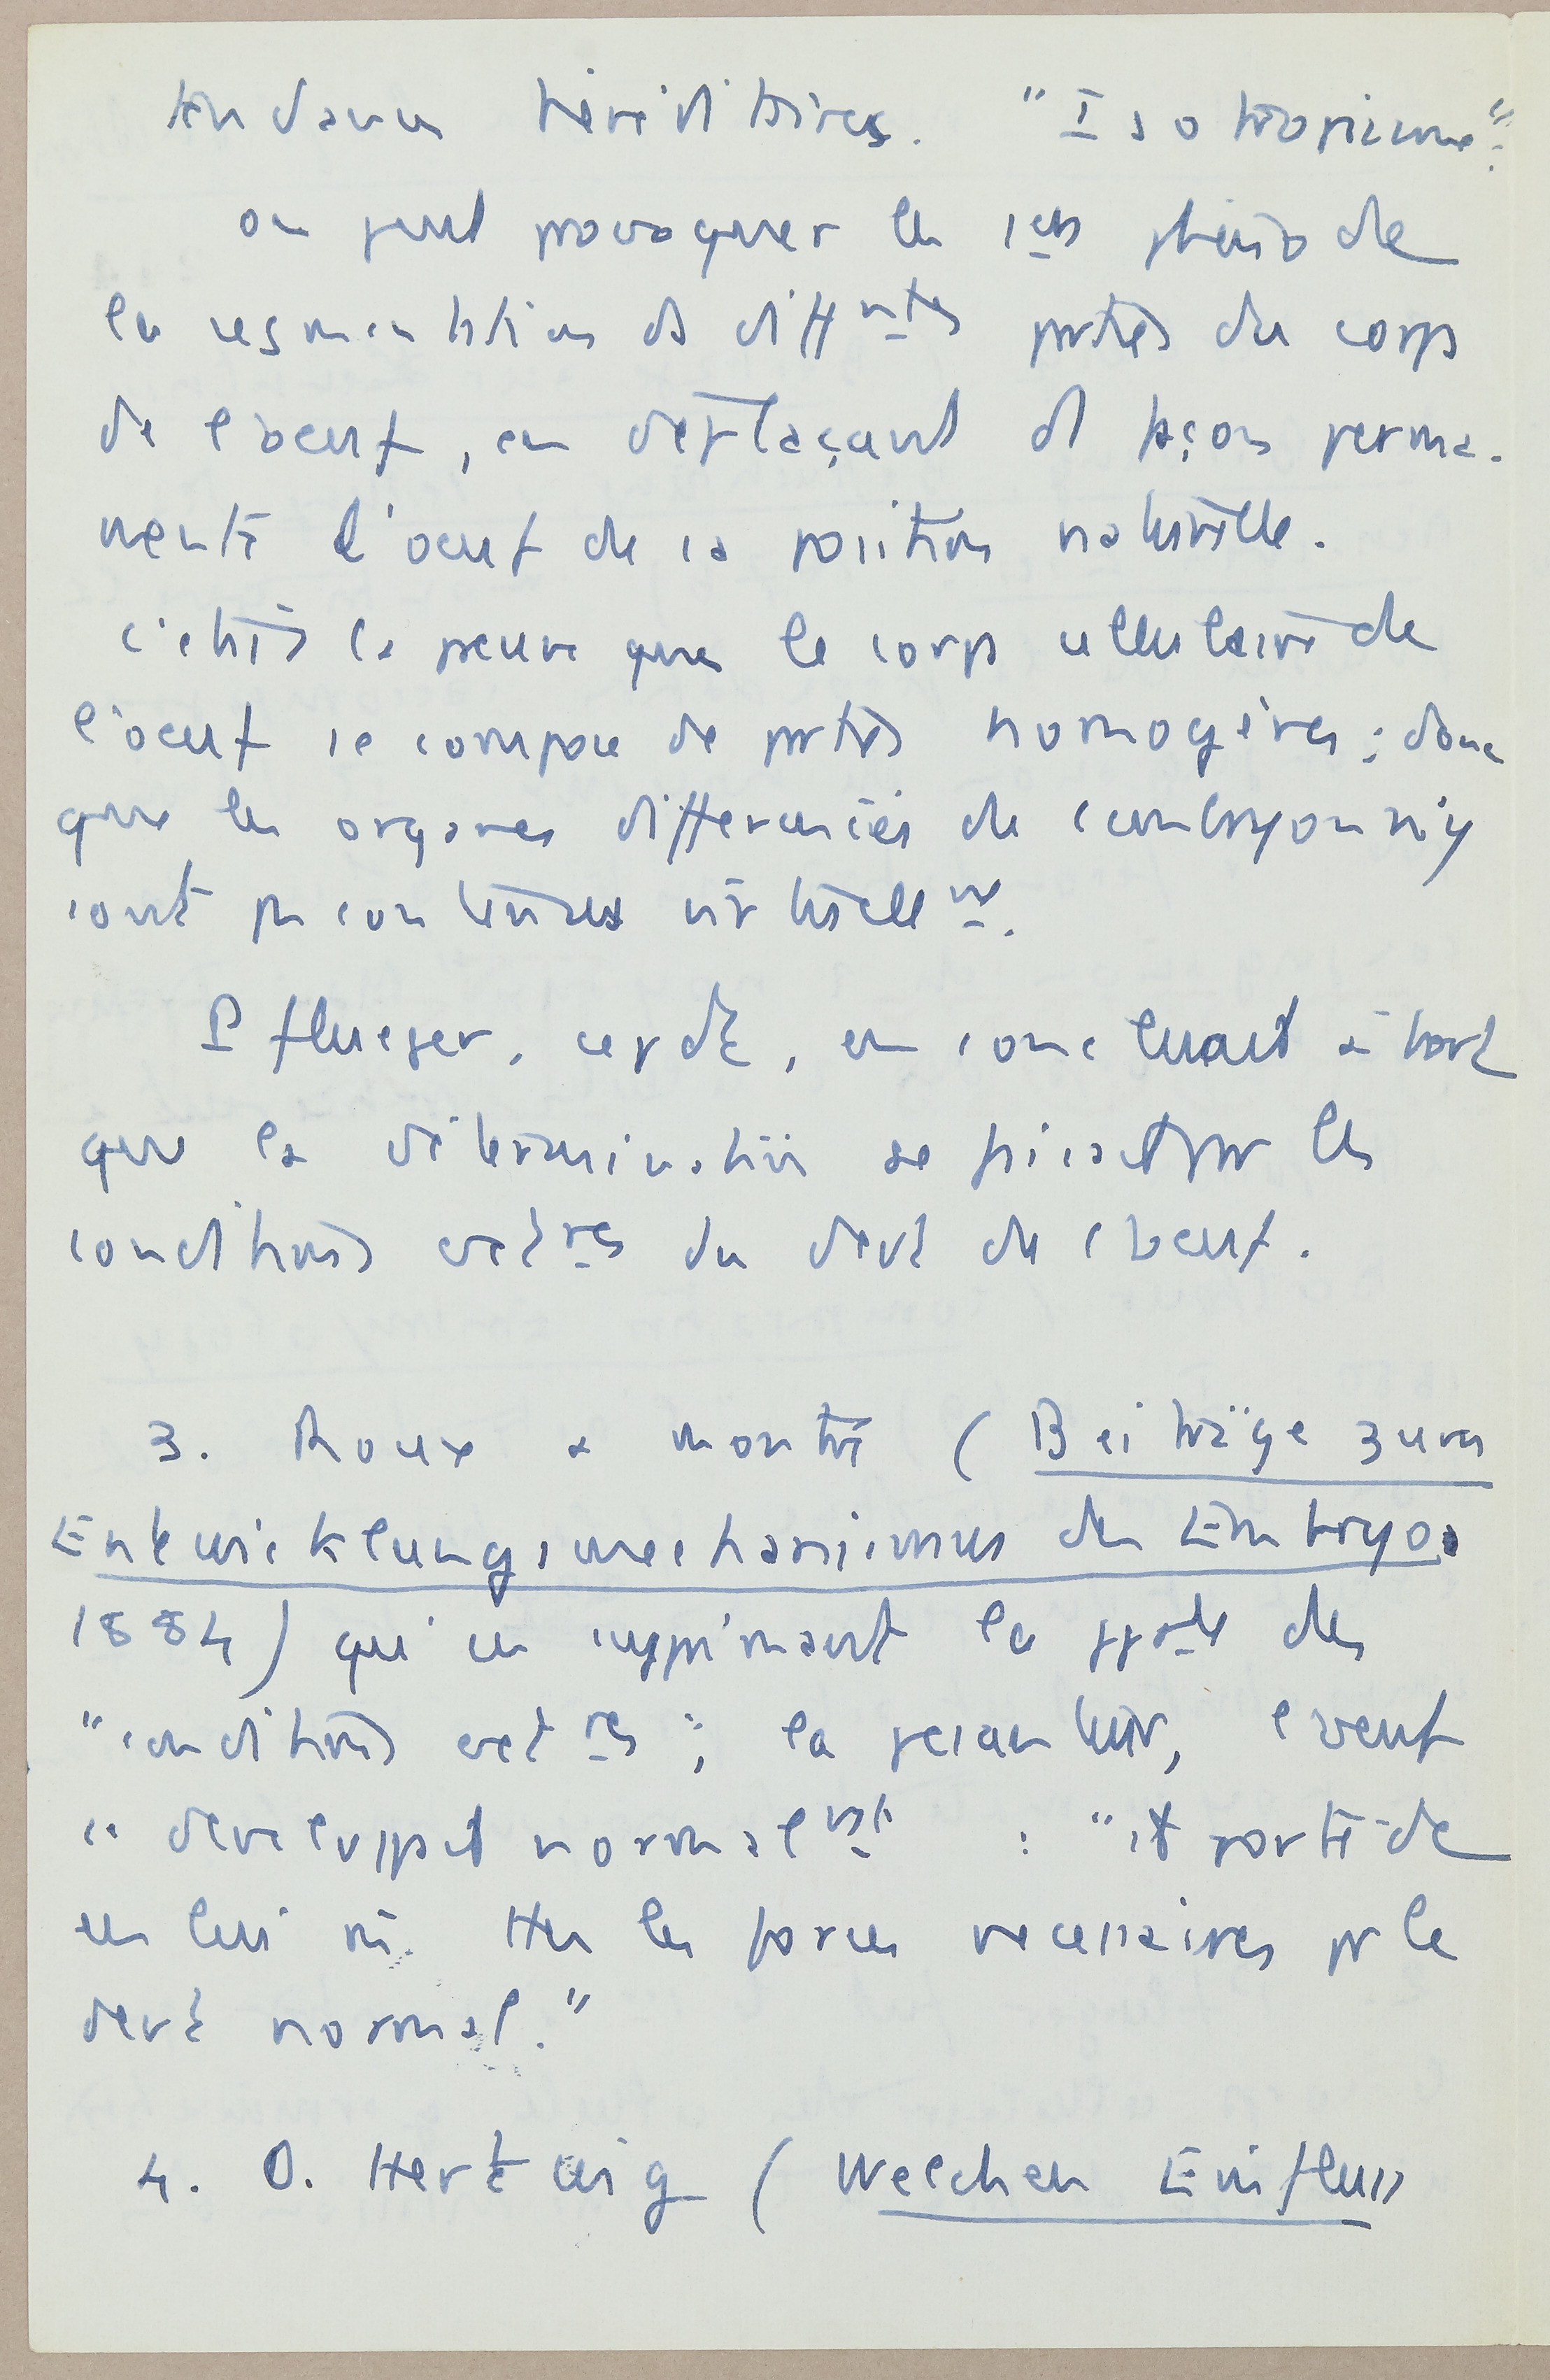 tendances héréditaires. "Isotropisme":
on peut provoquer les 1ers phéno de
la segmentation ds diffntes prties du corps
de l'oeuf, en déplaçant d façon perma-
nente l'oeuf de sa position naturelle.
C'était la preuve que le corps cellulaire de
l'oeuf se compose de prties homogènes ; donc
que les organes differenciés de l'embryon n'y
sont pas contenues virtuellem.
Pflueger, cepdt, en concluait à tort
que la détermination se faisait par les
conditions extres du devt de l'oeuf.
3. Roux a montré (Beiträge zum
Entwicklungsmechanismus des Embryos
1884) qu'en supprimant la ppale des
"conditions extres", la pesanteur, l'oeuf
se developpait normalmt : "il porte de
en lui mê. ttes les forces necessaires pr le
devt normal."
4. O. Hertwig (Welchen Einfluss